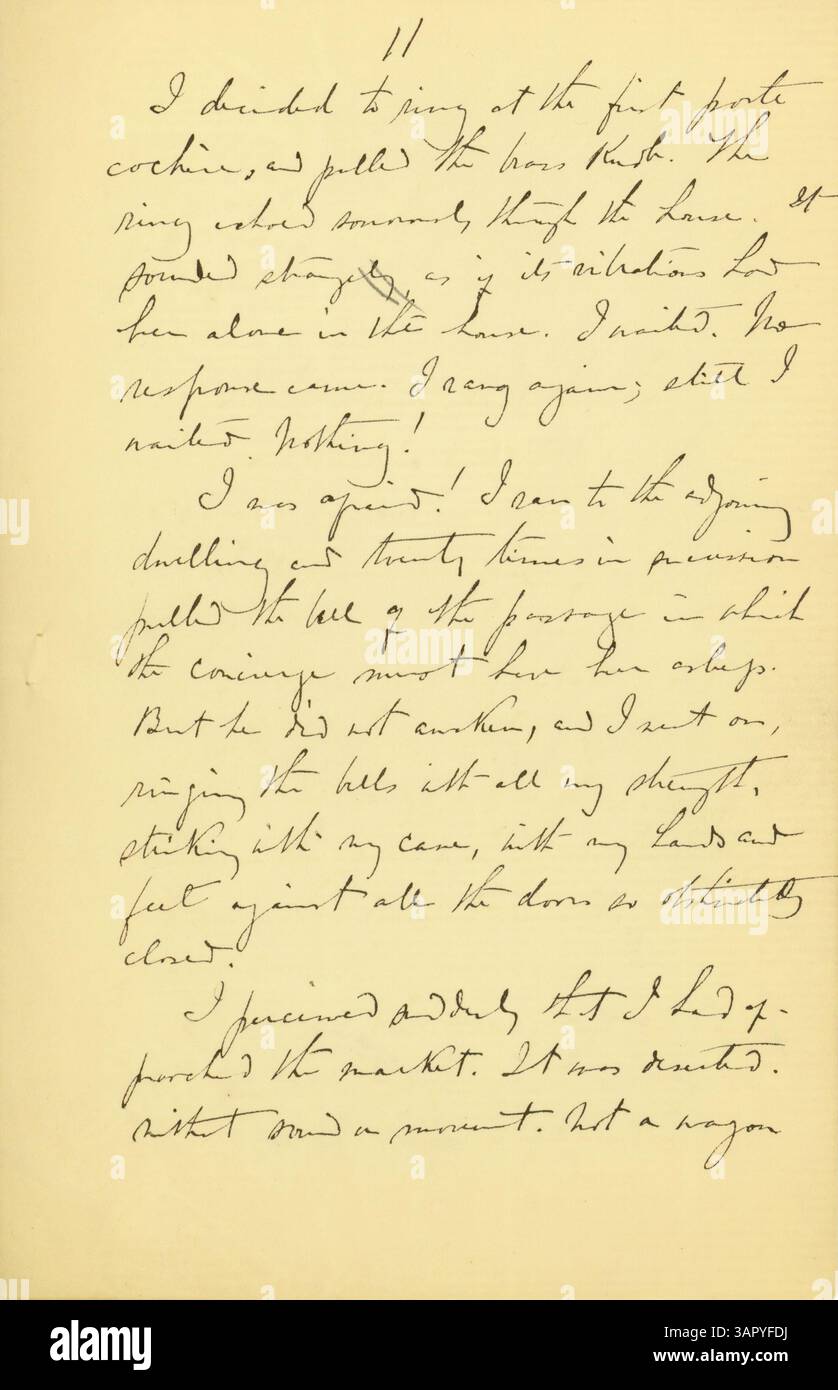 11
I decided to ring at the first porte
cochère, and pulled the brass knob. The
ring echoed sonorously through the house. It
sounded strangely, as if its vibrations had
been alone in the house. I waited. No
response came. I rang again; still I
waited. Nothing!
I was afraid! I ran to the adjoining
dwelling and twenty times in succession
pulled the bell of the passage in which
the concierge must have been asleep.
But he did not awaken, and I went on,
ringing the bells with all my strength,
striking with my cane, with my hands and
feet against all the doors so obstinately
closed.
I perceived suddenly that I had ap-
proached the market. It was deserted.
without sound or movement. Not a wagon
alamy
alamy
alamy
a
a
a
alamy
Image ID: 3APYFDJ
www.alamy.com